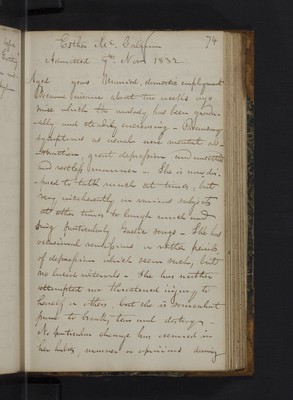 74
Esther Mc. Calgan
Admitted 9th. Nov 1832
Aged years Married, domestic employment
Became insane about two weeks ago
since which the malady has been gradu-
ally and steadily increasing - Primary
symptoms as usual were mental
great depression unsettled
and restless manner - She is now dis-
posed to talk much at times, but
very incoherently on various subjects
at other times to laugh much and
sing particularly Gaelic songs - She has
occasional or rather periods
of depression which seem such, but
no lucid intervals - She has neither
attempted nor threatened injury to
herself or others, but she is somewhat
prone to break, tear and destroy -
No particular change has occurred in
her habits, manner or opinions during